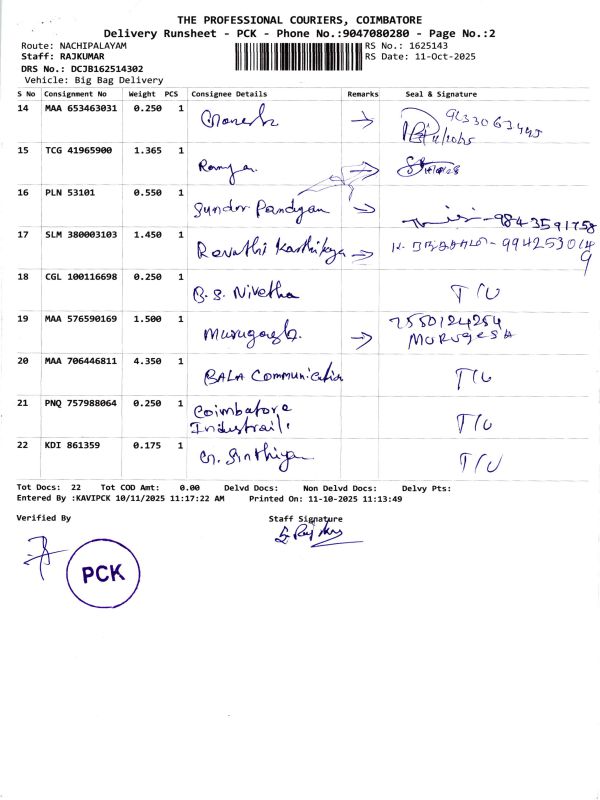 THE PROFESSIONAL COURIERS, COIMBATORE
Delivery Runsheet - PCK - Phone No.:9047080280 - Page No.:2
Route: NACHIPALAYAM
RS No.: 1625143
Staff: RAJKUMAR
RS Date: 11-Oct-2025
DRS No.: DCJB162514302
Vehicle: Big Bag Delivery
S No Consignment No Weight PCS Consignee Details Remarks Seal & Signature
14 MAA 653463031 0.250 1
15 TCG 41965900 1.365 1 Ramya
16 PLN 53101 0.550 1 Sundar Pandiyan → 9843591758
17 SLM 380003103 1.450 1 Revathi Karthikeya →
18 CGL 100116698 0.250 1 B. S. Nivetha T/U
19 MAA 576590169 1.500 1 → 7550124254
MURUGESH
20 MAA 706446811 4.350 1 BALA Communication T/U
21 PNQ 757988064 0.250 1 Coimbatore T/U
22 KDI 861359 0.175 1 T/U
Tot Docs: 22 Tot COD Amt: 0.00 Delvd Docs: Non Delvd Docs: Delvy Pts:
Entered By :KAVIPCK 10/11/2025 11:17:22 AM Printed On: 11-10-2025 11:13:49
Verified By Staff Signature
PCK